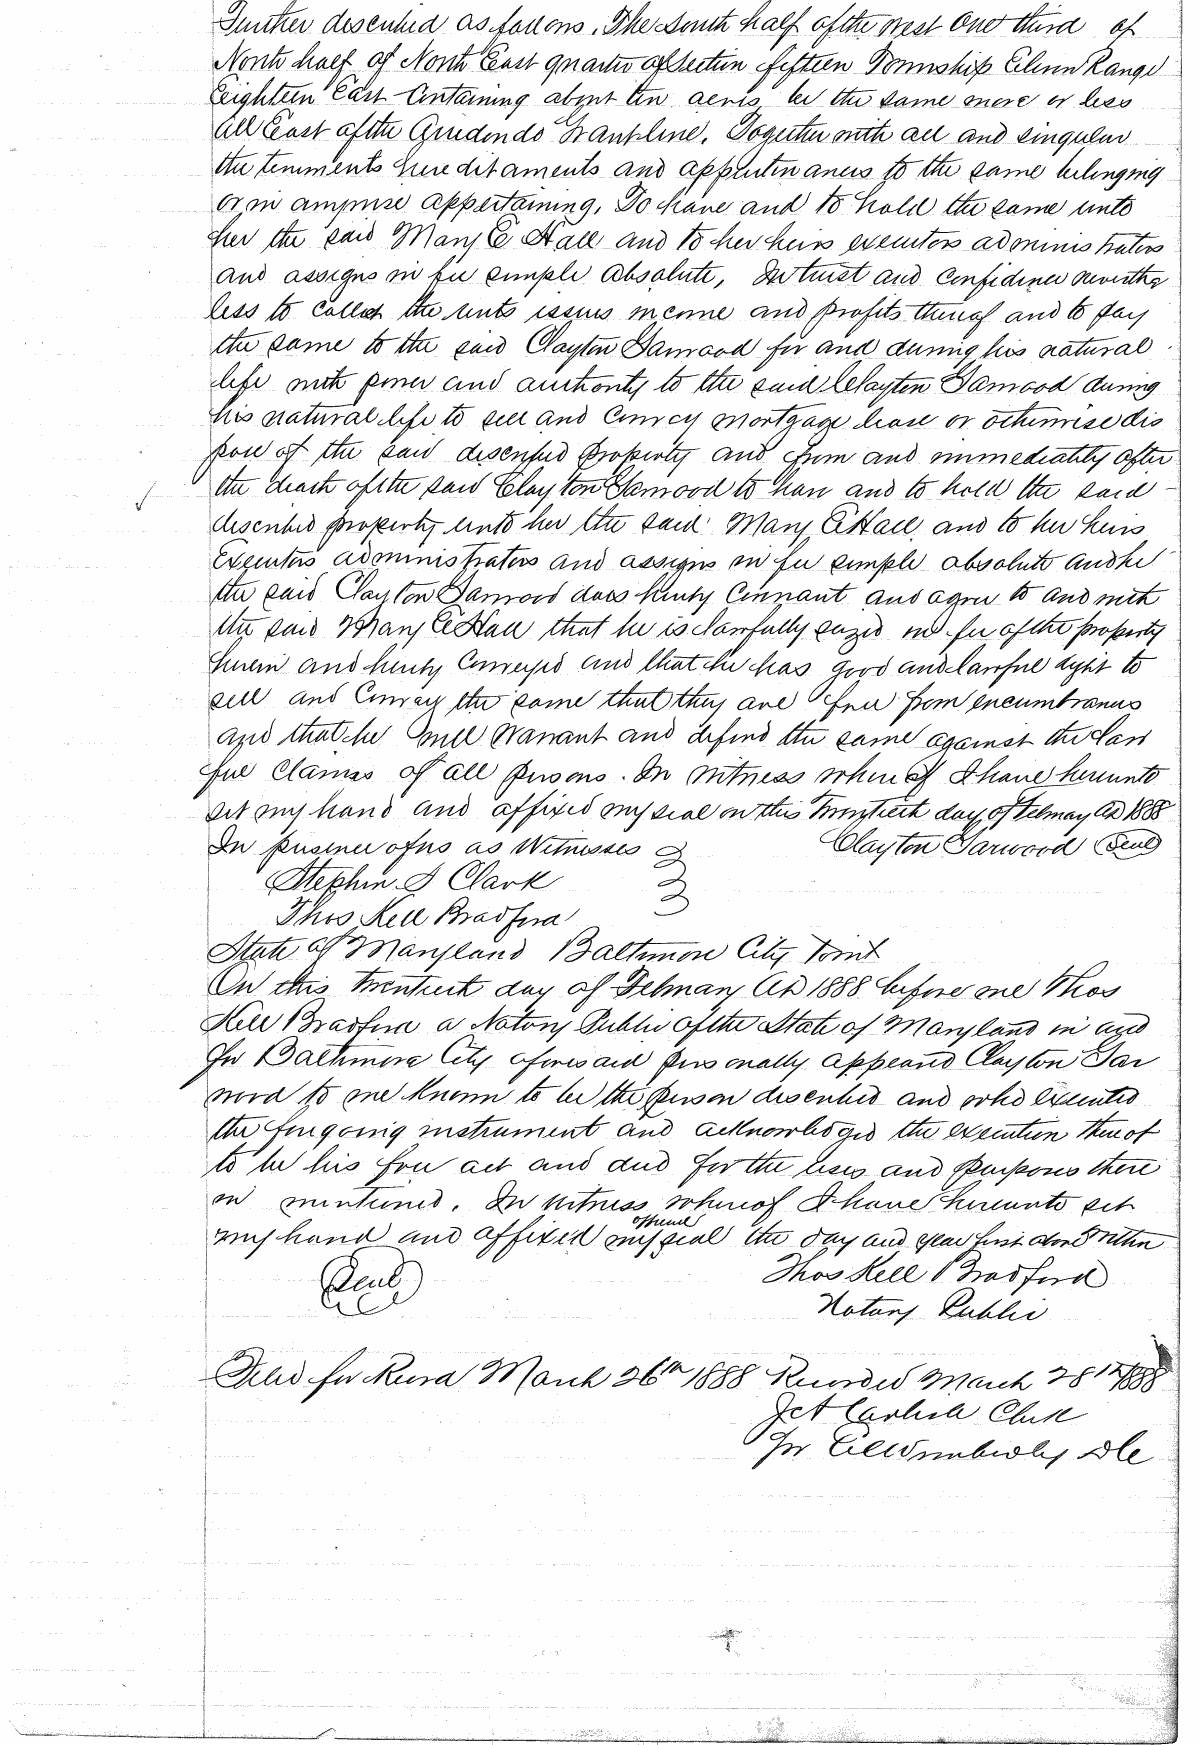 Further described as follows. The South half of the West One third of
North half of North East quarter of Section fifteen Township Eleven Range
Eighteen East Containing about ten acres, be the same more or less
All East of the Arredondo Grant line. Together with all and singular
the tenements hereditaments and appurtenances to the same belonging
or in anywise appertaining. To have and to hold the same unto
her the said Mary E Hall and to her heirs executors administrators
and assigns in fee simple absolute, In trust and confidence neverthe
less to collect the rents issues income and profits thereof and to pay
the same to the said Clayton Garwood for and during his natural
life with power and authority to the said Clayton Garwood during
his natural life to sell and convey mortgage lease or otherwise dis
pose of the said described property and from and immediately after
the death of the said Clayton Garwood to have and to hold the said
described property unto her the said Mary E Hall and to her heirs
Executors administrators and assigns in fee simple absolute and he
the said Clayton Garwood does hereby Covenant and agree to and with
the said Mary E Hall that he is lawfully seized in fee of the property
herein and hereby Conveyed and that he has good and lawful right to
sell and Convey the same that they are free from encumbrances
and that he will Warrant and defend the same against the law
ful Claims of all persons. In witness whereof I have hereunto
set my hand and affixed my seal on this Twentieth day of February AD 1888
In presence of us as Witnesses Clayton Garwood Seal
Stephen J Clark
Thos Kell Bradford
State of Maryland Baltimore City
On this Twentieth day of February AD 1888 before me Thos
Kell Bradford a Notary Public of the State of Maryland in and
for Baltimore City aforesaid personally appeared Clayton Gar
wood to me known to be the person described and who executed
the foregoing instrument and acknowledged the execution thereof
to be his free act and deed for the uses and purposes there
in mentioned. In witness whereof I have hereunto set
my hand and affixed my official seal the day and year first above written
Seal Thos Kell Bradford
Notary Public
Filed for Record March 26th 1888 Recorded March 28th 1888
J A Carlisle Clerk
Per Wimberly DC